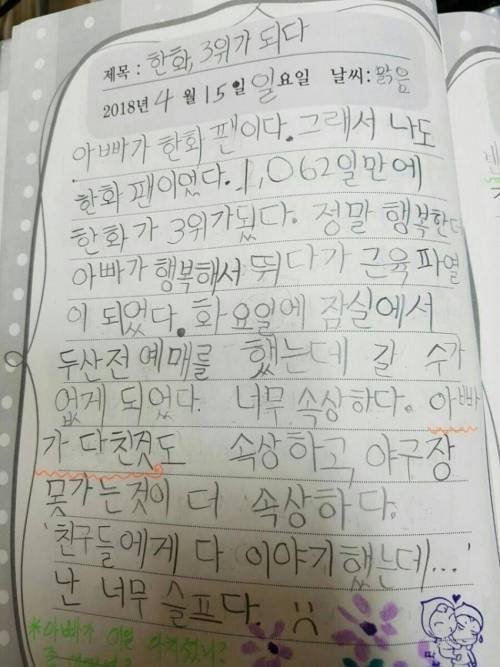 제목 : 한화, 3위가 되다
2018년 4 월 15 일 일 요일 날씨: 맑음
아빠가 한화 팬이다. 그래서 나도
한화 팬이었다. 1,062일만에
한화가 3위가됬다. 정말 행복한데
아빠가 행복해서 뛰다가 근육파열
이 되었다. 화요일에 잠실에서
두산전 예매를 했는데 갈 수가
없게 되었다. 너무 속상하다. 아빠
가 다친것도 속상하고, 야구장
못가는것이 더 속상하다.
'친구들에게 다 이야기했는데...'
난 너무 슬프다.
*아빠가